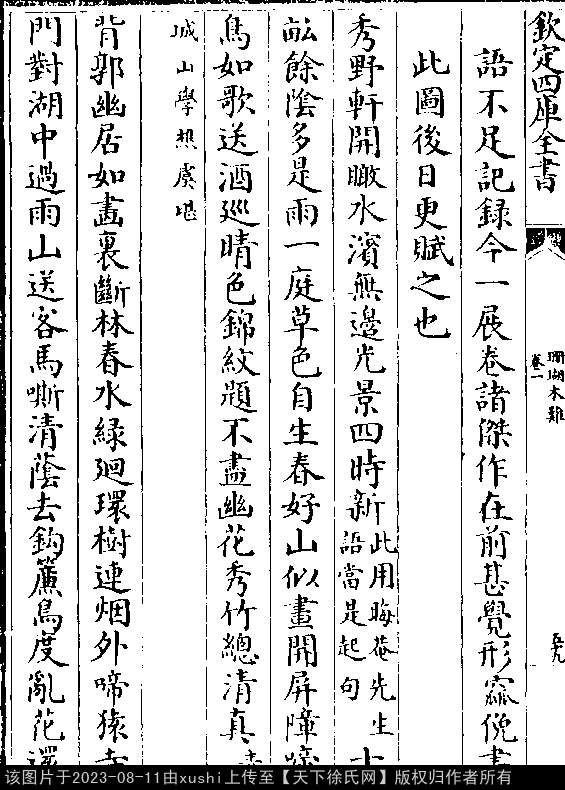 欽定四庫全書
珊瑚木難
卷一
五九
語不足記録今一展卷諸傑作在前甚覺形窳俛書
此圖後日更賦之也
秀野軒開瞰水濱無邊光景四時新此用晦菴先生語當是起句十
畝餘陰多是雨一庭草色自生春好山似畫開屏障
鳥如歌送酒廵晴色錦紋題不盡幽花秀竹總清真
城山學樵虞堪
背郭幽居如畫裏斷林春水綠廻環樹連烟外啼猿寺
門對湖中過雨山送客馬嘶清蔭去鈎簾鳥度亂花還
该图片于2023-08-11由xushi上传至【天下徐氏网】版权归作者所有